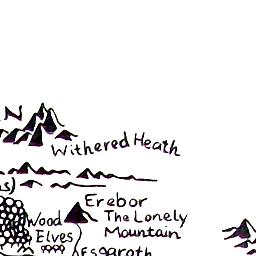 N
Withered Heath
s)
Erebor
The Lonely
Mountain
Wood
Elves
Esgaroth